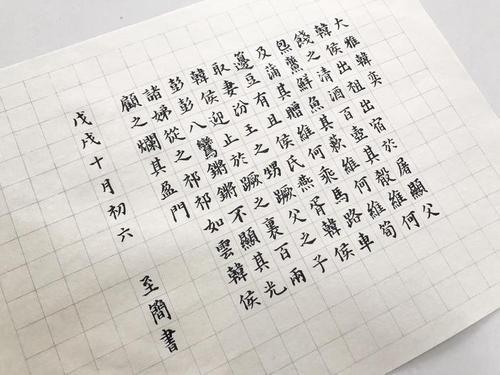 大雅韓奕
韓侯出祖出宿於屠顯父
餞之清酒百壺其殽維何
炰鱉鮮魚其蔌維何維筍
及蒲其贈維何乘馬路車
籩豆有且侯氏燕胥韓侯
取妻汾王之甥蹶父之子
韓侯迎止於蹶之裏百兩
彭彭八鸞鏘鏘不顯其光
諸婦從之祁祁如雲韓侯
顧之爛其盈門
戊戌十月初六 至簡書